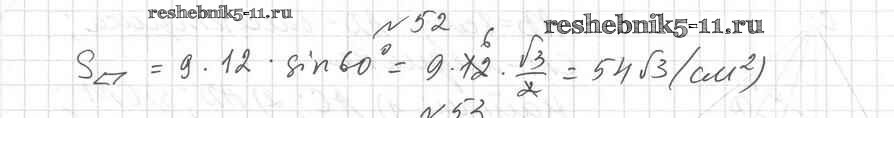 reshebnik5-11.ru
№52
reshebnik5-11.ru
S▱ = 9 · 12 · sin60° = 9 · 12 6 · √3/2 = 54√3 (см²)
№53